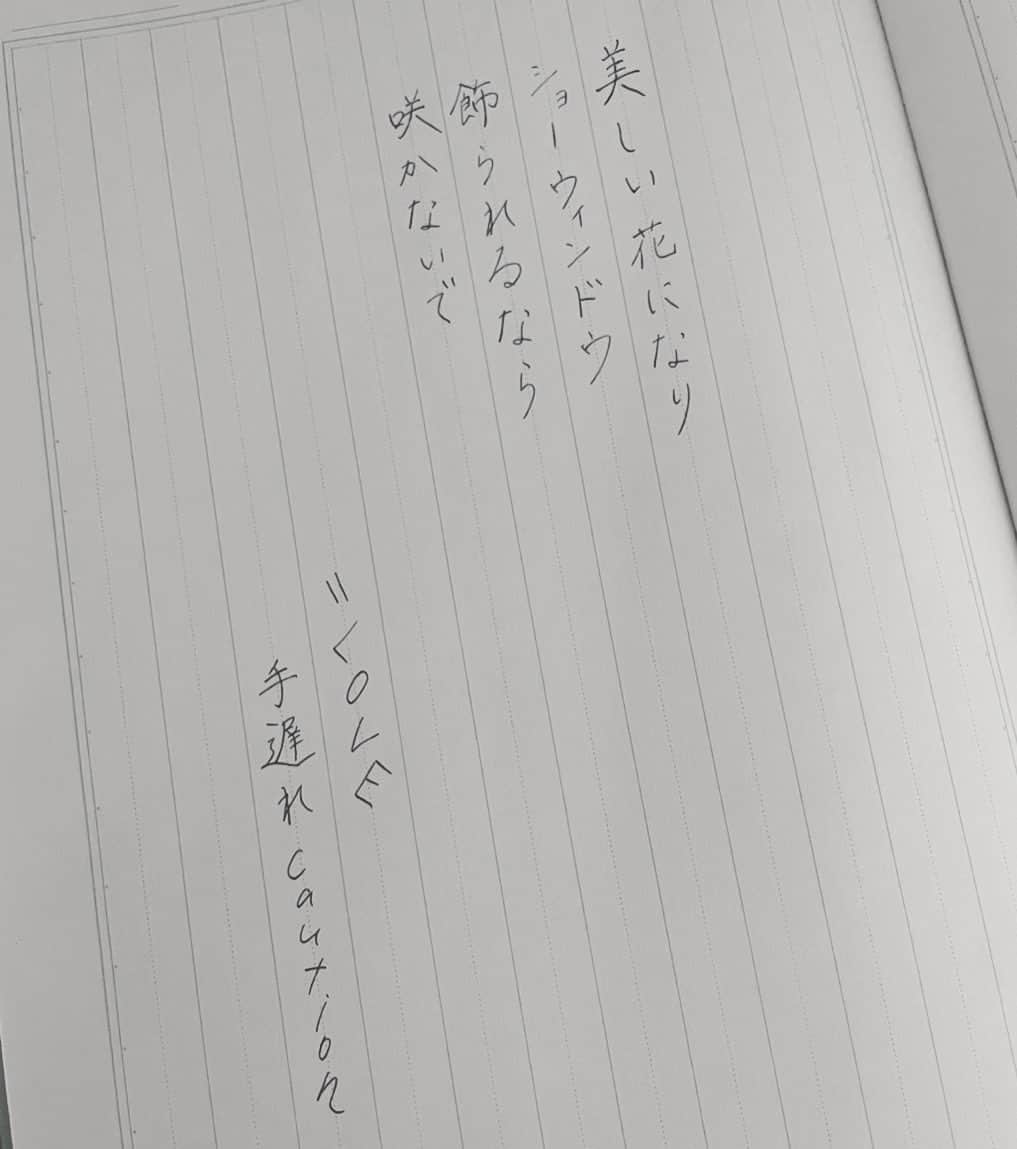 美しい花になり
ショーウィンドウ
飾られるなら
咲かないで
=LOVE
手遅れcaution